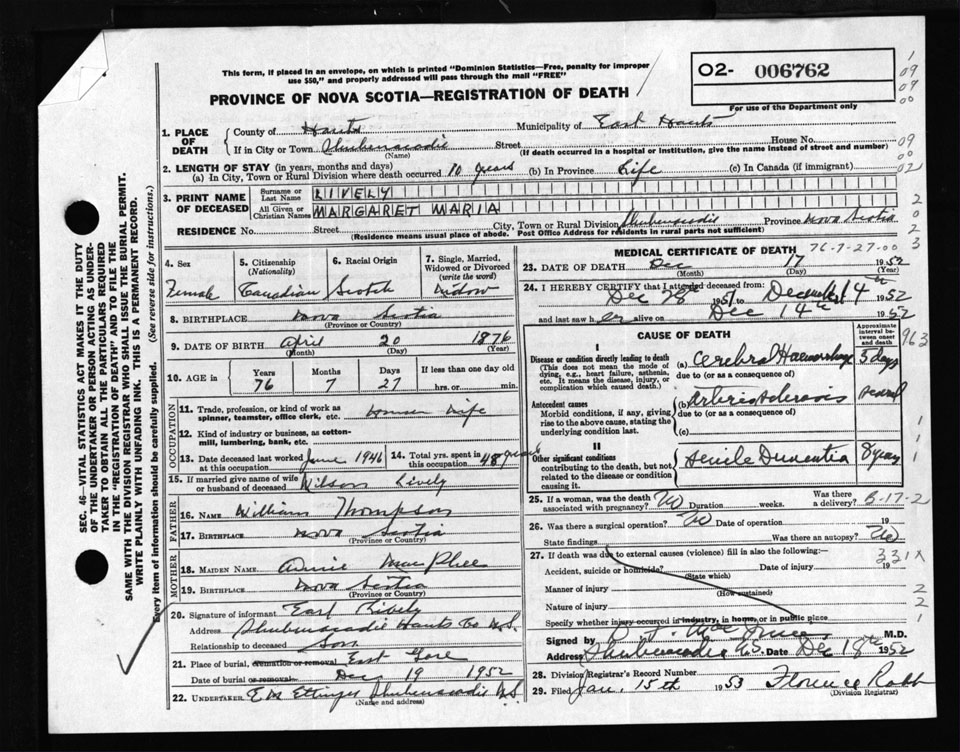 This form, if placed in an envelope, on which is printed "Dominion Statistics—Free, penalty for improper
use $50," and properly addressed will pass through the mail "FREE"
02- 006762
For use of the Department only
PROVINCE OF NOVA SCOTIA—REGISTRATION OF DEATH
1. PLACE OF DEATH
County of Hants Municipality of East Hants
If in City or Town Shubenacadie Street House No.
(Name) (If death occurred in a hospital or institution, give the name instead of street and number)
2. LENGTH OF STAY (in years, months and days)
(a) In City, Town or Rural Division where death occurred 10 years (b) In Province Life (c) In Canada (if immigrant)
3. PRINT NAME OF DECEASED
Surname or Last Name LIVELY
All Given or Christian Names MARGARET MARIA
RESIDENCE No. Street City, Town or Rural Division Shubenacadie Province Nova Scotia
(Residence means usual place of abode. Post Office Address for residents in rural parts not sufficient)
4. Sex
Female
5. Citizenship (Nationality)
Canadian
6. Racial Origin
Scotch
7. Single, Married, Widowed or Divorced (write the word)
Widow
8. BIRTHPLACE Nova Scotia
(Province or Country)
9. DATE OF BIRTH April 20 1876
(Month) (Day) (Year)
10. AGE in Years 76 Months 7 Days 27 If less than one day old
hrs. or min.
OCCUPATION
11. Trade, profession, or kind of work as spinner, teamster, office clerk, etc. House wife
12. Kind of industry or business, as cotton-mill, lumbering, bank, etc.
13. Date deceased last worked at this occupation June 1946
14. Total yrs. spent in this occupation 48 years
15. If married give name of wife or husband of deceased Wilson Lively
FATHER
16. NAME William Thompson
17. BIRTHPLACE Nova Scotia
(Province or Country)
MOTHER
18. MAIDEN NAME Annie MacPhee
19. BIRTHPLACE Nova Scotia
(Province or Country)
20. Signature of informant Lively
Address Shubenacadie Hants Co N.S.
Relationship to deceased Son
21. Place of burial, cremation or removal East Gore
Date of burial or removal Dec 19 1952
22. UNDERTAKER Ettinger Shubenacadie NS
(Name and address)
MEDICAL CERTIFICATE OF DEATH
76-7-27-00
23. DATE OF DEATH Dec 17 1952
(Month) (Day) (Year)
24. I HEREBY CERTIFY that I attended deceased from:
Dec 28 1951 to December 14th 1952
and last saw her alive on Dec 14th 1952
CAUSE OF DEATH
Approximate interval between onset and death
I
Disease or condition directly leading to death
(This does not mean the mode of dying, e.g., heart failure, asthenia, etc. It means the disease, injury, or complication which caused death.)
(a) Cerebral Haemorrhage 3 days
due to (or as a consequence of)
Antecedent causes
Morbid conditions, if any, giving rise to the above cause, stating the underlying condition last.
(b) Arteriosclerosis several
due to (or as a consequence of)
(c)
II
Other significant conditions
contributing to the death, but not related to the disease or condition causing it.
Senile Dementia 8 years
25. If a woman, was the death associated with pregnancy? No Duration weeks. Was there a delivery?
26. Was there a surgical operation? No Date of operation 19
State findings Was there an autopsy? No
27. If death was due to external causes (violence) fill in also the following:
331X
Accident, suicide or homicide? Date of injury 19
(State which)
Manner of injury
(How sustained)
Nature of injury
Specify whether injury occurred in industry, in home, or in public place
Signed by M.D.
Address Shubenacadie N.S. Date Dec 18th 1952
28. Division Registrar's Record Number
29. Filed Jan. 15th 1953 Florence Robb
(Division Registrar)
SEC. 46—VITAL STATISTICS ACT MAKES IT THE DUTY
OF THE UNDERTAKER OR PERSON ACTING AS UNDER-
TAKER TO OBTAIN ALL THE PARTICULARS REQUIRED
IN THE "REGISTRATION OF DEATH" AND TO FILE THE
SAME WITH THE DIVISION REGISTRAR WHO SHALL ISSUE THE BURIAL PERMIT.
WRITE PLAINLY WITH UNFADING INK. THIS IS A PERMANENT RECORD.
Every item of information should be carefully supplied. (See reverse side for instructions.)